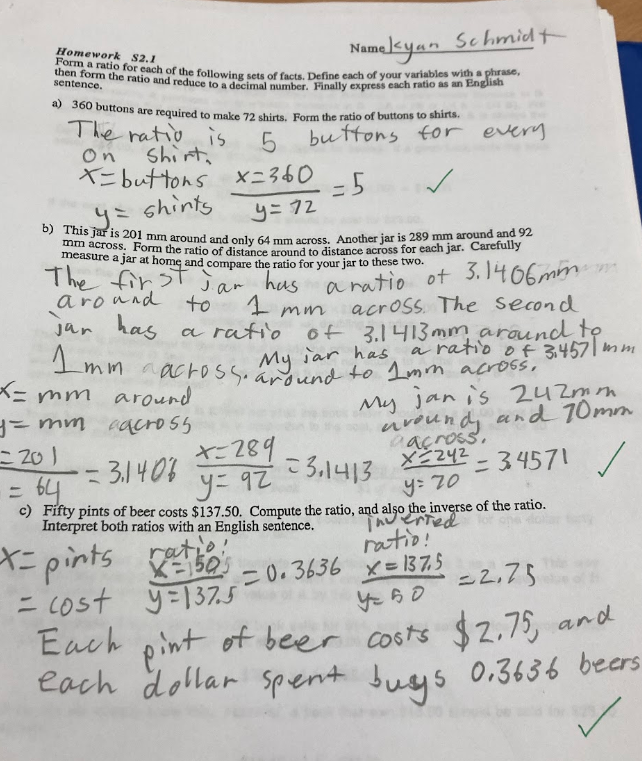 Name Kyan Schmidt
Homework S2.1
Form a ratio for each of the following sets of facts. Define each of your variables with a phrase,
then form the ratio and reduce to a decimal number. Finally express each ratio as an English
sentence.
a) 360 buttons are required to make 72 shirts. Form the ratio of buttons to shirts.
The ratio is 5 buttons for every
on shirt.
x=buttons x=360 =5
y= shirts y=72
b) This jar is 201 mm around and only 64 mm across. Another jar is 289 mm around and 92
mm across. Form the ratio of distance around to distance across for each jar. Carefully
measure a jar at home and compare the ratio for your jar to these two.
The first jar has a ratio of 3.1406mm
around to 1 mm across. The second
jar has a ratio of 3.1413mm around to
1mm across. My jar has a ratio of 3.4571 mm
around to 1mm across.
x= mm around My jar is 242mm
y= mm across around, and 70mm
across.
= 201 = 3.1406 x=289 =3.1413 x=242 = 3.4571
= 64 y= 92 y= 70
c) Fifty pints of beer costs $137.50. Compute the ratio, and also the inverse of the ratio.
Interpret both ratios with an English sentence.
inverted
x= pints ratio: ratio:
x=50 =0.3636 x=137.5 =2.75
= cost y=137.5 y=50
Each pint of beer costs $2.75, and
each dollar spent buys 0.3636 beers